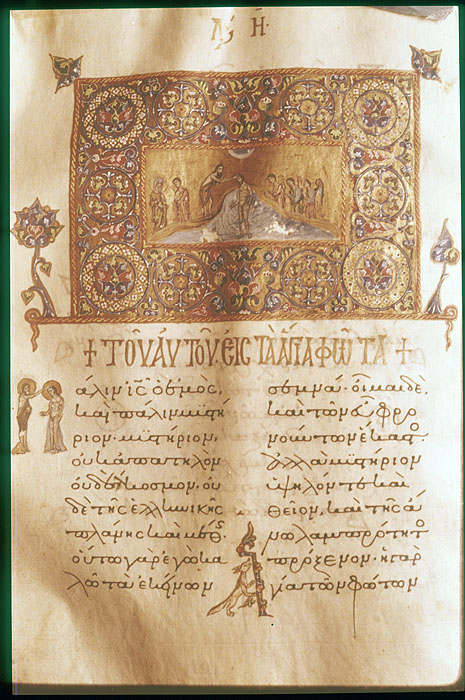 Λόγ Η·
+ ΤΟΥ ΑΥΤΟΥ ΕΙΣ ΤΑ ΑΓΙΑ ΦΩΤΑ +
άλιν ἰς ὁ ἐμὸς,
καὶ πάλιν μυστή
ριον· μυστήριον,
οὐκ ἀπατηλὸν
οὐδ' ἄκοσμον, οὐ
δὲ τῆς ἑλληνικῆς
πλάνης καὶ μέθ
οὕτω γὰρ ἐγὼ κα
λῶ τὰ ἐκείνων
σεμνά· οἶμαι δὲ,
καὶ τῶν εὖ φρο
νούντων ἕκαστ
ἀλλὰ μυστήριον
ὑψηλόν τε καὶ
θεῖον, καὶ τῆς ἄ
νω λαμπρότητ
πρόξενον· ἡ γὰρ
γία τῶν φώτων